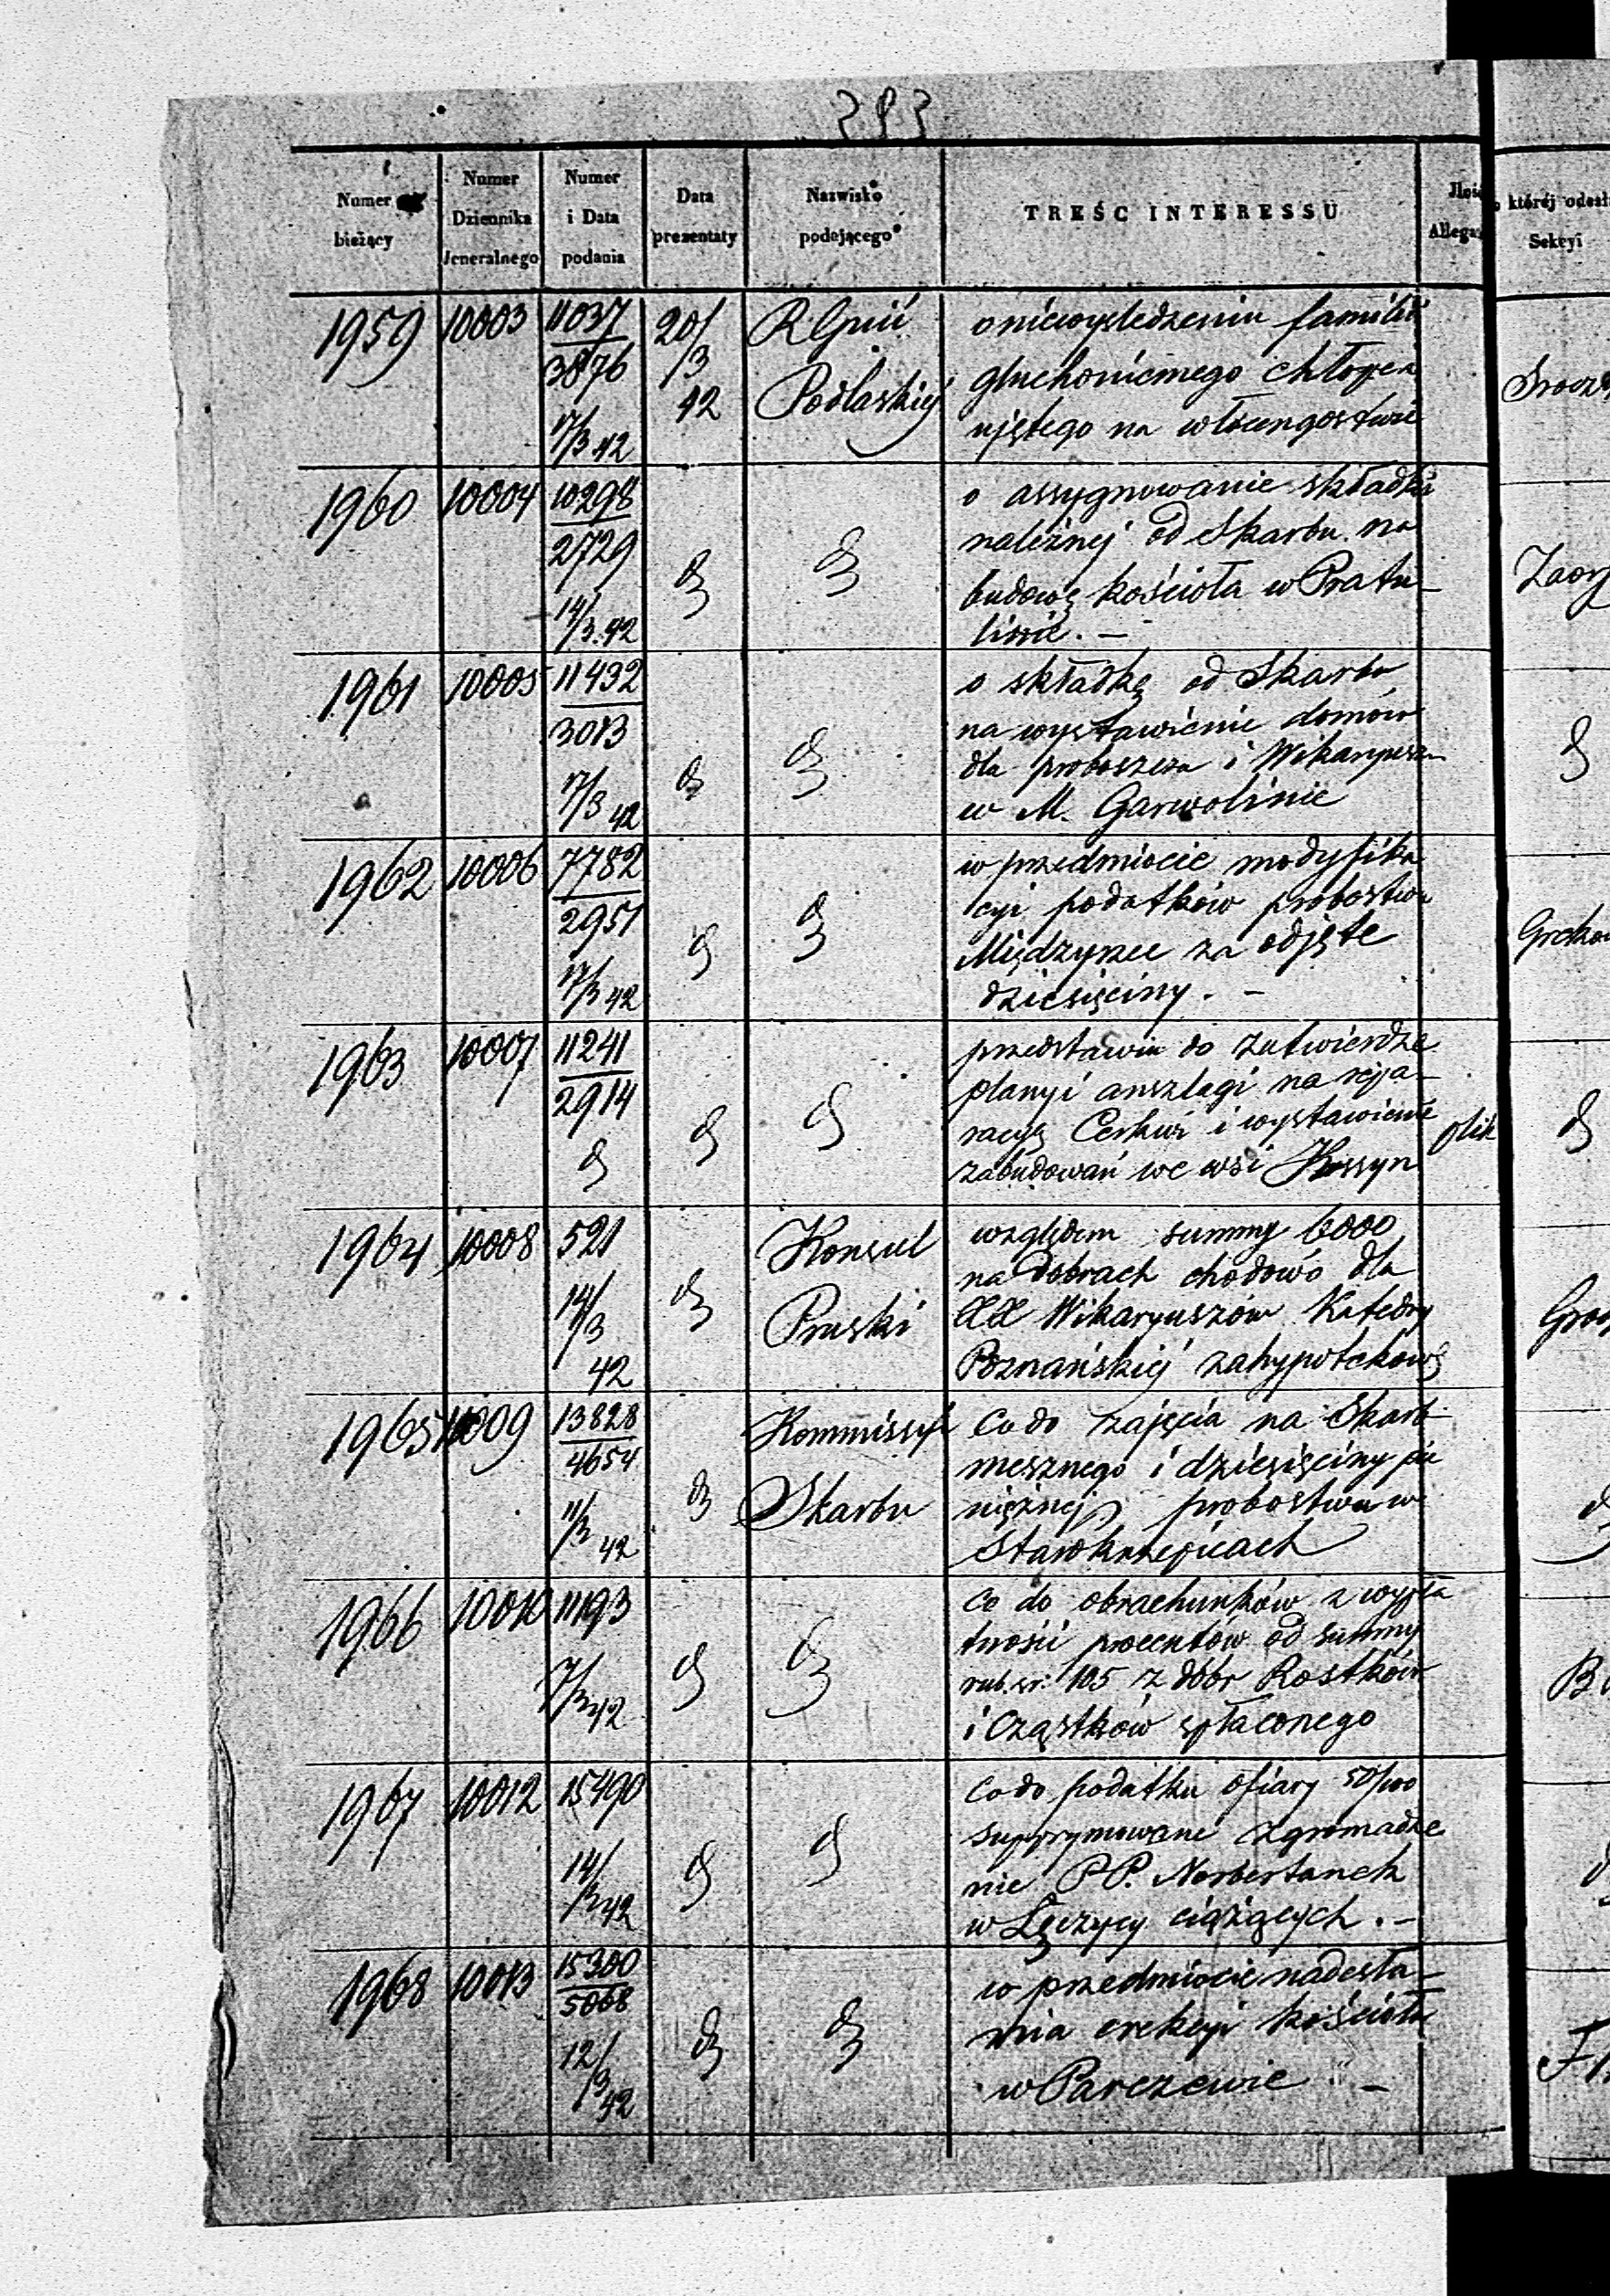 393
Numer bieżący
Numer Dziennika Jeneralnego
Numer i Data podania
Data prezentaty
Nazwisko podającego
TREŚC INTERESSU
której odesł
Sekcyi
1959 10003 11037 20/ R Gnii o niewysledzeniu familii
3876 3 głuchoniemego chłopca
42 Podlaskiej ujętego na włóczęgostwie
17/3 42
1960 10004 10298 o assygnowanie składki
2729 należnej od Skarbu na
budowę kościoła w Pratu-
14/3 42 linie. –
1961 10005 11432 o składkę od Skarbu
3013 na wystawienie domów
dla proboszcza i Wikaryusza
17/3 42 w M. Garwolinie
1962 10006 7782 w przedmiocie modyfika
2951 cyi podatków probostwa
Międzyrzec za odjęte
17/3 42 dziesięciny. –
1963 10007 11241 przedstawia do zatwierdze
2914 plany i anszlagi na repa-
racyę Cerkwi i wystawienie plik
zabudowań we wsi Kossyn
1964 10008 521 Konsul względem summy 6000
14/3 na dobrach chodowo dla
Pruski XX Wikaryuszów Katedry
42 Poznańskiej zahypotekowę
1965 10009 13828 Kommissyi Co do zajęcia na Skarb
4654 mesznego i dziesięciny pie
11/3 42 Skarbu niężnej probostwa w
1966 10010 11193 Co do obrachunków z wypła
tności procentów od summy
7/3 42 rub. sr. 105 z dóbr Rostków
i Cząstków spłaconego
1967 10012 15490 Co do podatku ofiary 50/100
suprymowane zgromadze
14/3 42 nie PP. Norbertanek
w Łęczycy ciążących. –
1968 10013 15300 w przedmiocie nadesła-
5068 nia erekcyi kościoła
12/3 42 w Parczewie –